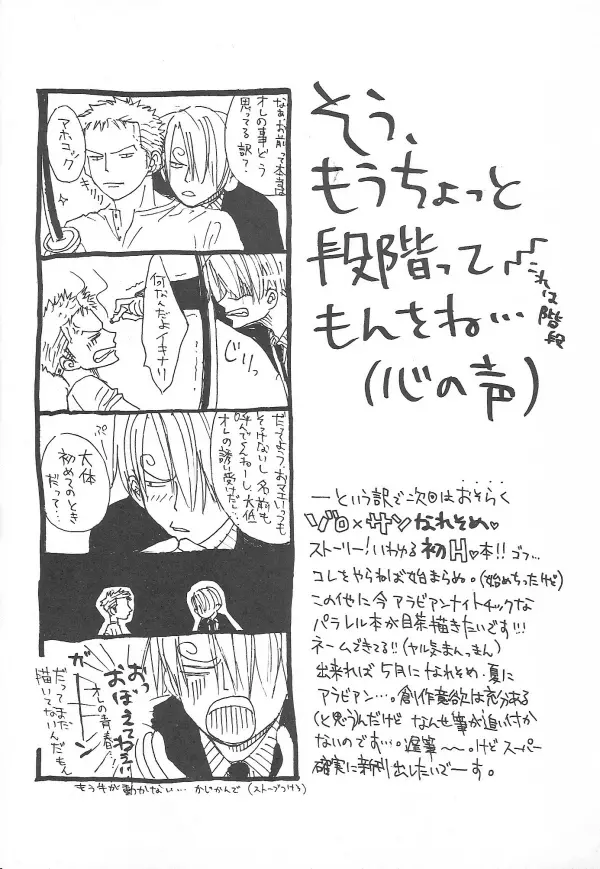 そう、
もうちょっと
段階って
もんをね…
(心の声)
これは階段
なぁお前って本当は
オレの事どう
思ってる訳?
アホコック
何なんだよイキナリ
じりっ
だってよう、おマエいつも
そっけないし名前も
呼んでくんねーし、大体
オレの誘い受けだし…
ぷ
大体
初めてのとき
だって…
おっ
おぼえてねぇ!!
オレの青春…
ガーーン
だってまだ
描いてないんだもん
もう手が動かない… かじかんで (ストーブつけろ)
―という訳で次回はおそらく
ゾロ×サンなれそめ♥
ストーリー!いわゆる初H♥本!!ゴフ…
コレをやらねば始まらぬ。(始めちったけど)
この他に今アラビアンナイトチックな
パラレル本が目茶描きたいです!!!
ネームできてる!!(ヤル気まんまん)
出来れば5月になれそめ・夏に
アラビアン…。創作意欲は充分ある
(と思う)んだけど なんせ筆が追い付か
ないのです…。遅筆〜〜。けどスーパー
確実に新刊出したいでーす。